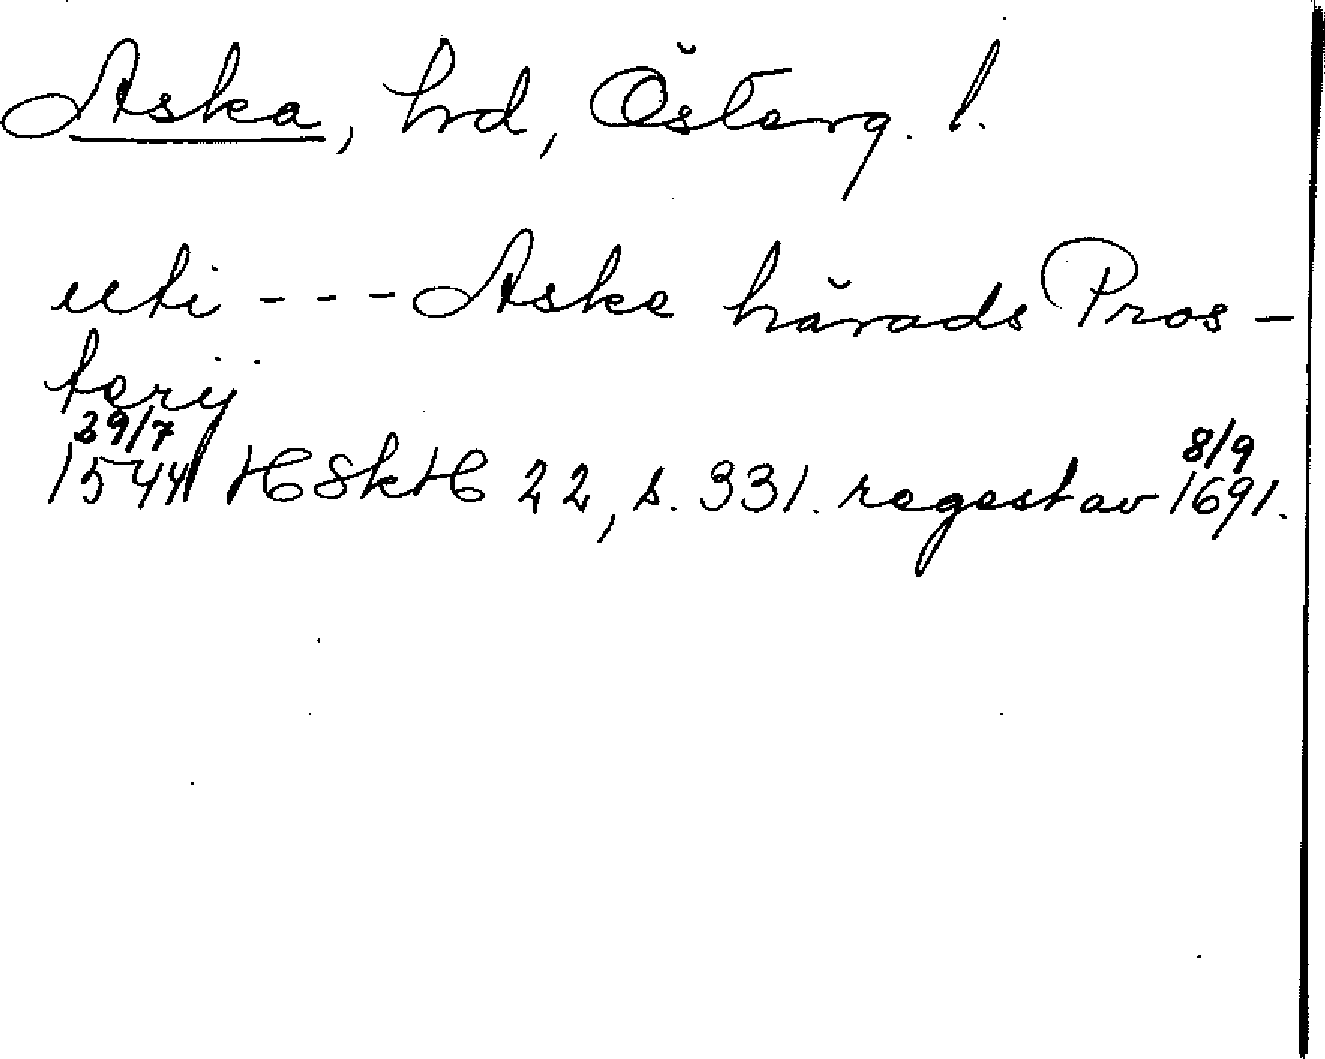 Aska, hrd, Österg. l.
uti - - - Aske härads Pros-
terij
29/7
1544 HSkH 22, s. 331. regest av 8/9 1691.